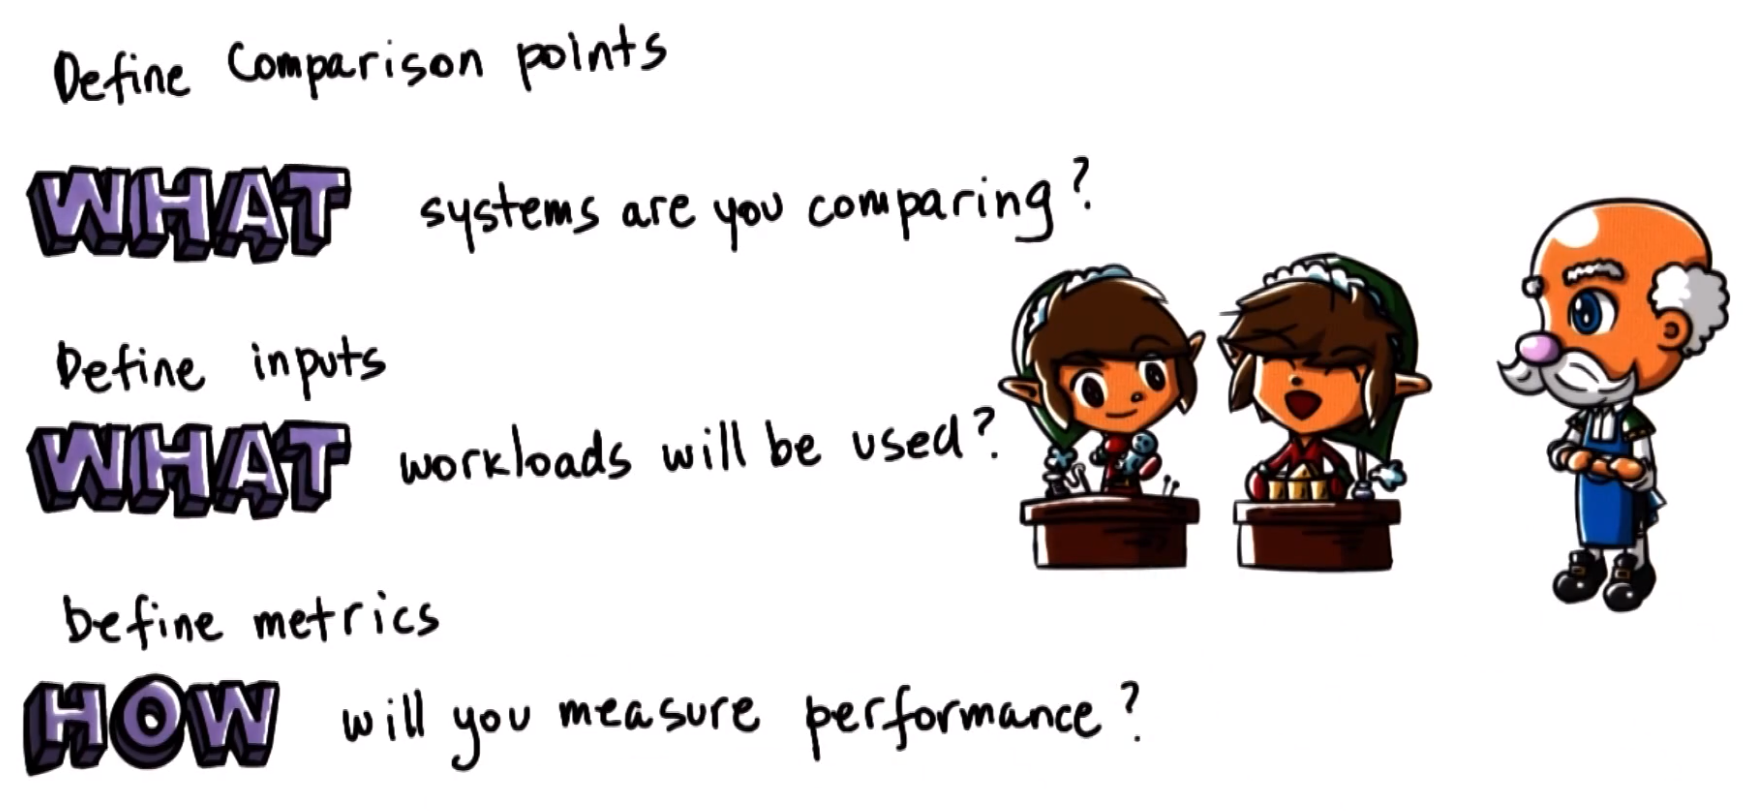 Define Comparison points
WHAT systems are you comparing?
Define inputs
WHAT workloads will be used?
Define metrics
HOW will you measure performance?